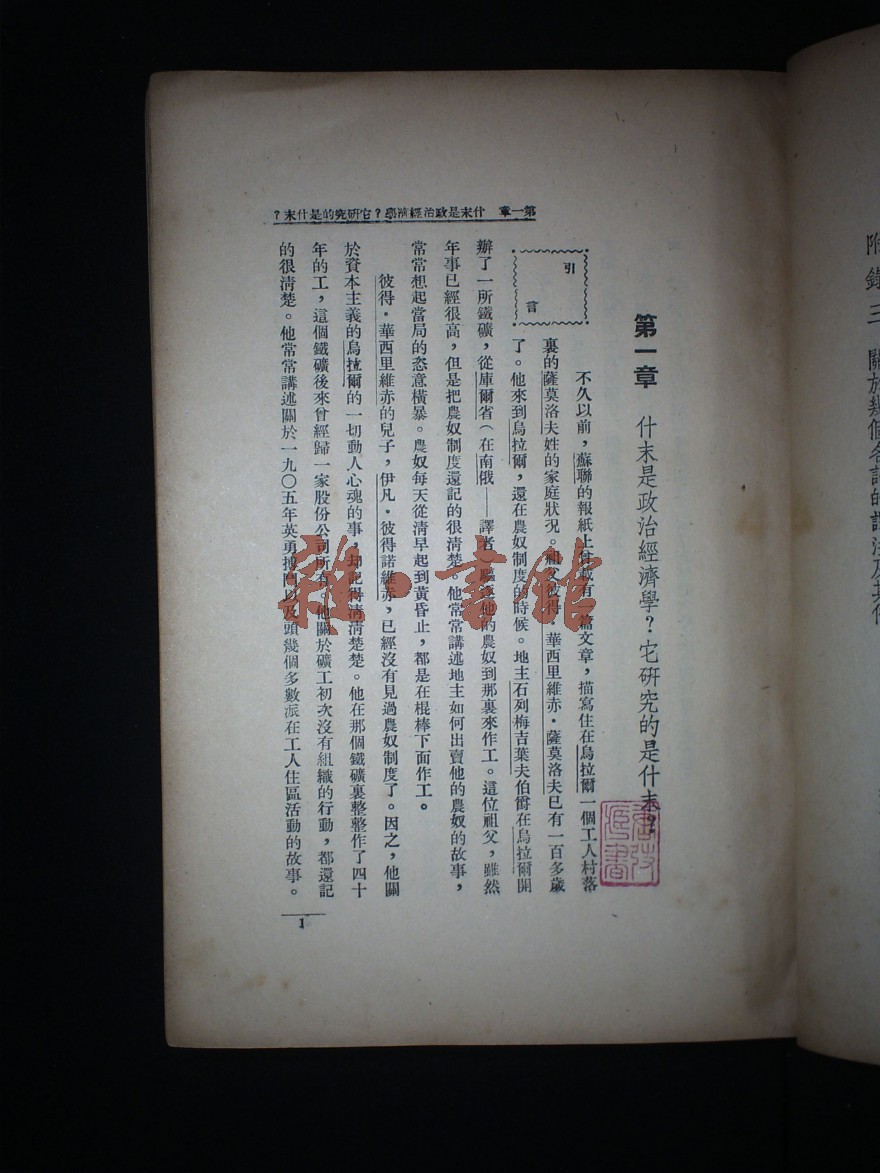 附錄三 關於幾個名詞的譯法及其他
第一章 什末是政治經濟學?它研究的是什末?
第一章 什末是政治經濟學?它研究的是什末?
引言
不久以前,蘇聯的報紙上曾載有一篇文章,描寫住在烏拉爾一個工人村落
裏的薩莫洛夫姓的家庭狀況。祖父彼得·華西里維赤·薩莫洛夫已有一百多歲
了。他來到烏拉爾,還在農奴制度的時候。地主石列梅吉葉夫伯爵在烏拉爾開
辦了一所鐵礦,從庫爾省(在南俄——譯者)驅逐他的農奴到那裏來作工。這位祖父,雖然
年事已經很高,但是把農奴制度還記的很清楚。他常常講述地主如何出賣他的農奴的故事,
常常想起當局的恣意橫暴。農奴每天從清早起到黃昏止,都是在棍棒下面作工。
彼得·華西里維赤的兒子,伊凡·彼得諾維赤,已經沒有見過農奴制度了。因之,他關
於資本主義的烏拉爾的一切動人心魂的事,却記得清清楚楚。他在那個鐵礦裏整整作了四十
年的工,這個鐵礦後來曾經歸一家股份公司所有。他關於礦工初次沒有組織的行動,都還記
的很清楚。他常常講述關於一九〇五年英勇搏鬥以及頭幾個多數派在工人住區活動的故事。
1
雜·書館